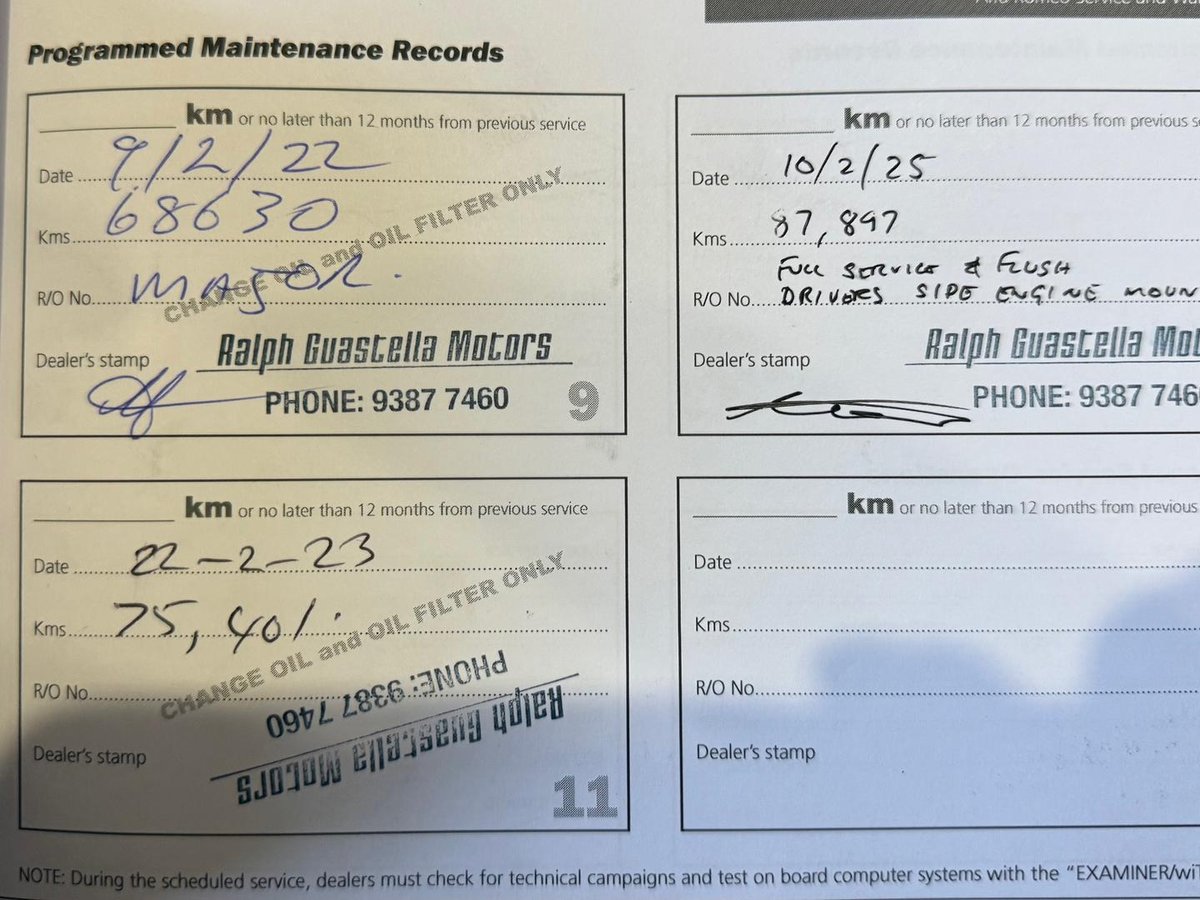 Programmed Maintenance Records
km or no later than 12 months from previous service
Date 9/2/22
Kms 68630
R/O No. MAJOR.
CHANGE OIL and OIL FILTER ONLY
Dealer's stamp
Ralph Guastella Motors
PHONE: 9387 7460
9
km or no later than 12 months from previous
Date 10/2/25
Kms 87,897
FULL SERVICE & FLUSH
R/O No. DRIVERS SIDE ENGINE MOUN
Dealer's stamp
Ralph Guastella Mot
PHONE: 9387 746
km or no later than 12 months from previous service
Date 22-2-23
Kms 75,401
CHANGE OIL and OIL FILTER ONLY
R/O No.
PHONE: 9387 7460
Ralph Guastella Motors
Dealer's stamp
11
km or no later than 12 months from previous
Date
Kms
R/O No.
Dealer's stamp
NOTE: During the scheduled service, dealers must check for technical campaigns and test on board computer systems with the "EXAMINER/wiT